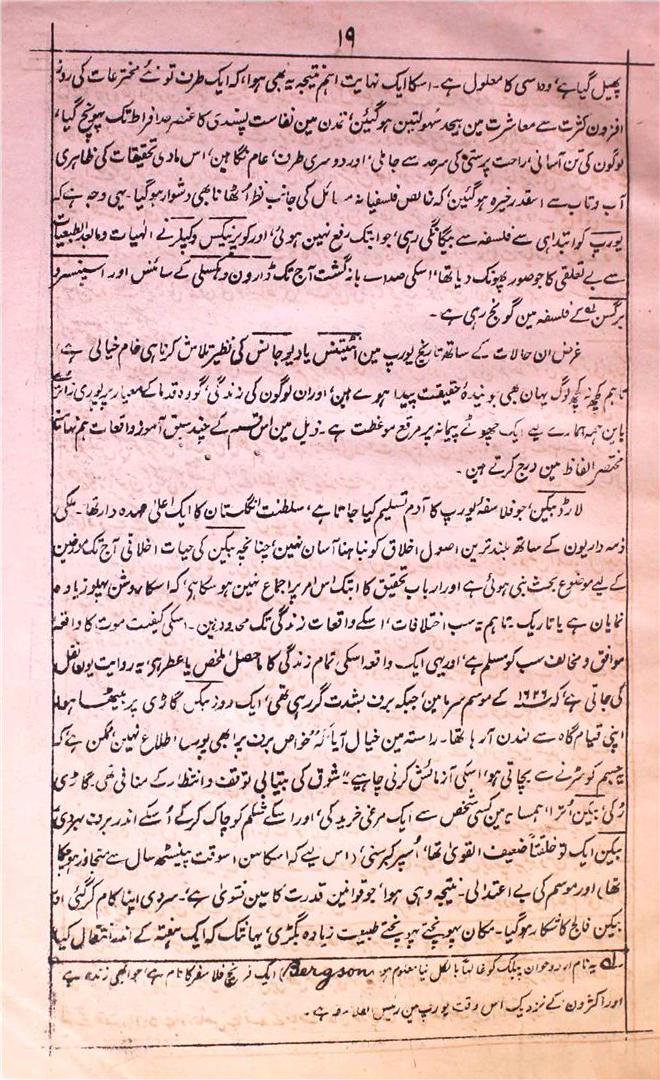 ۱۹
پھیل گیا ہے، وہ اسی کا معلول ہے۔ اسکا ایک نہایت اہم نتیجہ یہ بھی ہوا، کہ ایک طرف تو نئے مخترعات کی روز
افزون کثرت سے معاشرت مین بیحد سہولتین ہوگئین، تمدن مین نفاست پسندی کا عنصر حد افراط تک پہونچ گیا،
لوگون کی تن آسانی، راحت پرستی کی سرحد سے جا ملی، اور دوسری طرف، عام نگاہین، اس مادی تحقیقات کی ظاہری
آب و تاب سے اسقدر خیرہ ہوگئین، کہ خالص فلسفیانہ مسائل کی جانب نظر اُٹھانا بھی دشوار ہوگیا۔ یہی وجہ ہے کہ
یورپ کو ابتدا ہی سے فلسفہ سے بیگانگی رہی، جو ابتک رفع نہین ہوئی، اور کوپرنیکس و کپلر نے الٰہیات و مابعد الطبعیات
سے بے تعلقی کا جو صور پھونک دیا تھا، اسکی صداے بازگشت آج تک ڈارون و ہکسلی کے سائنس اور اسپنسر و
برگسن کے فلسفہ مین گونج رہی ہے۔
غرض ان حالات کے ساتھ تاریخ یورپ مین انٹیسٹنس یا دیوجانس کی نظیر تلاش کرنا ہی خام خیالی ہے،
تاہم کچھ نہ کچھ لوگ یہان بھی جویندۂ حقیقت پیدا ہوے ہین، اور ان لوگون کی زندگی، گو وہ قدما کے معیار پر پوری نہ اترے
با این ہمہ ہمارے لیے ایک چھوٹے پیمانہ پر مرقع موعظت ہے۔ ذیل مین اس قسم کے چند سبق آموز واقعات ہم نہایت
مختصر الفاظ مین درج کرتے ہین۔
لارڈ بیکن، جو فلاسفۂ یورپ کا آدم تسلیم کیا جاتا ہے، سلطنت انگلستان کا ایک اعلیٰ عہدہ دار تھا۔ ملکی
ذمہ داریون کے ساتھ بلند ترین اصول اخلاق کو نباہنا آسان نہین، چنانچہ بیکن کی حیات اخلاقی آج تک مؤرخین
کے لیے موضوع بحث بنی ہوئی ہے اور ارباب تحقیق کا ابتک اس امر پر اجماع نہین ہو سکا ہے، کہ اسکا روشن پہلو زیادہ
نمایان ہے یا تاریک۔ تاہم یہ سب اختلافات، اسکے واقعات زندگی تک محدود ہین۔ اسکی کیفیت موت کا واقعہ
موافق و مخالف سب کو مسلم ہے، اور یہی ایک واقعہ اسکی تمام زندگی کا ماحصل، ملخص یا عطر ہے، یہ روایت یون نقل
کی جاتی ہے، کہ ۱۶۲۶ کے موسم سرما مین، جبکہ برف بشدت گر رہی تھی، ایک روز بیکن گاڑی پر بیٹھا ہوا
اپنی قیام گاہ سے لندن آ رہا تھا۔ راستہ مین خیال آیا کہ "خواص برف پر ابھی پورا اطلاع نہین، ممکن ہے کہ
یہ جسم کو سڑنے سے بچاتی ہو، اسکی آزمائش کرنی چاہیے۔" شوق کی بیتابی توقف و انتظار کے منافی تھی۔ گاڑی
رُکی، بیکن اُترا، ہمسایہ مین کسی شخص سے ایک مرغی خرید کی، اور اسکے شکم کو چاک کر کے اُسکے اندر برف بھر دی
بیکن ایک تو خلقتاً ضعیف القویٰ تھا، اُسپر کبر سنی، (اس لیے کہ اسکا سن اسوقت پینسٹھ سال سے متجاوز ہو چکا
تھا) اور موسم کی بے اعتدالی۔ نتیجہ وہی ہوا، جو قوانین قدرت کا عین فتویٰ ہے۔ سردی اپنا کام کر گئی اور
بیکن فالج کا شکار ہوگیا۔ مکان پہونچتے پہونچتے طبیعت زیادہ بگڑی، یہانتک کہ ایک ہفتہ کے اندر انتقال کیا
لہ یہ نام اردو خوان پبلک کو غالباً بالکل نیا معلوم ہو (Bergson) ایک فرنچ فلاسفر کا نام ہے، جو ابھی زندہ ہے
اور اکثرون کے نزدیک اس وقت یورپ مین رئیس الفلاسفہ ہے۔